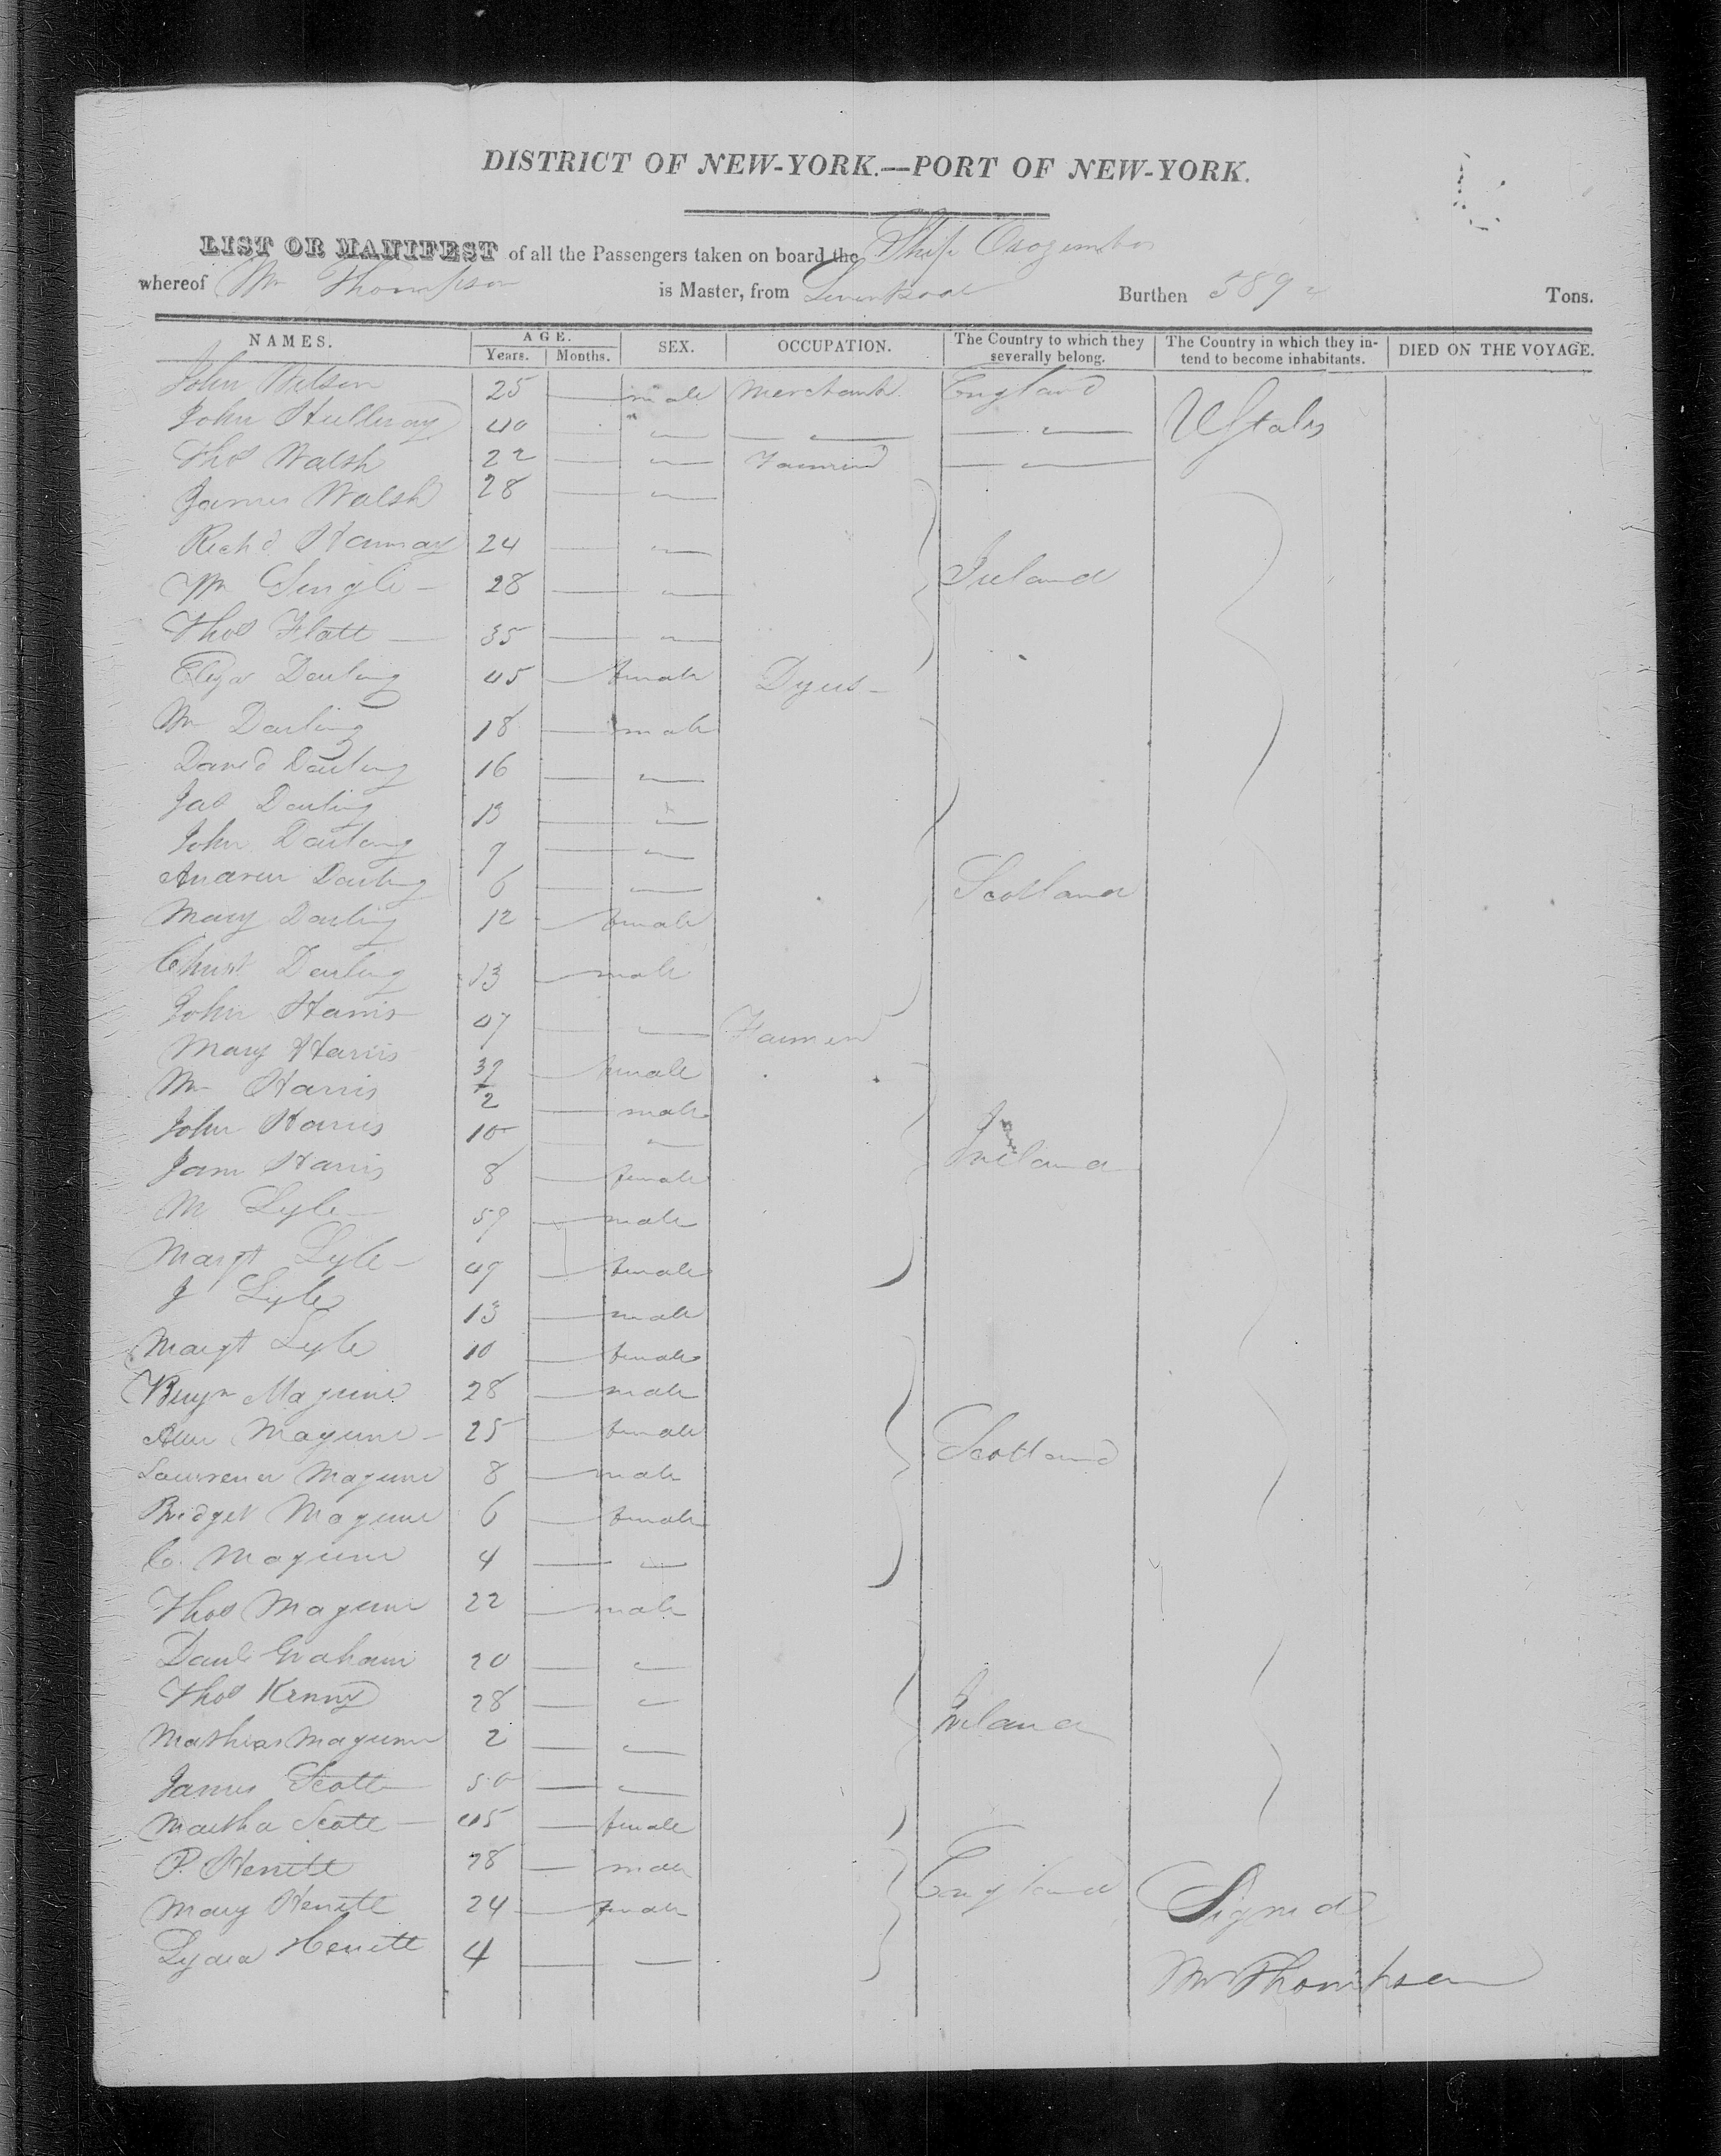 DISTRICT OF NEW-YORK.—PORT OF NEW-YORK.
LIST OR MANIFEST of all the Passengers taken on board the Ship
whereof Wm Thompson is Master, from Liverpool Burthen 589 Tons.
NAMES. AGE. SEX. OCCUPATION. The Country to which they severally belong. The Country in which they intend to become inhabitants. DIED ON THE VOYAGE.
Years. Months.
John Wilson 25 male Merchant England
John 40 " UStates
Thos Walsh 22 Farmer
James Walsh 28
Richd Hannay 24
Wm 28 Ireland
Thos Flatt 35
Eliza Darling 45 female Dyers
Wm Darling 18 male
David Darling 16
Jas Darling 13
John Darling 9
Andrew Darling 6 Scotland
Mary Darling 12 female
Christ Darling 13 male
John Harris 47 Farmer
Mary Harris 39 female
Wm Harris 2 male
John Harris 10
Jane Harris 8 female Ireland
M Lyle 59 male
Margt Lyle 49 female
J Lyle 13 male
Margt Lyle 10 female
Benjn Maguire 28 male
Ann Maguire 25 female Scotland
Lawrence Maguire 8 male
Bridget Maguire 6 female
C. Maguire 4
Thos Maguire 22 male
Danl Graham 20
Thos Kenny 28
Mathias Maguire 2 Ireland
James Scott 50
Martha Scott 45 female
P. Hewitt 28 male England
Mary Hewitt 24 female Signed
Lydia Hewitt 4
Wm Thompson